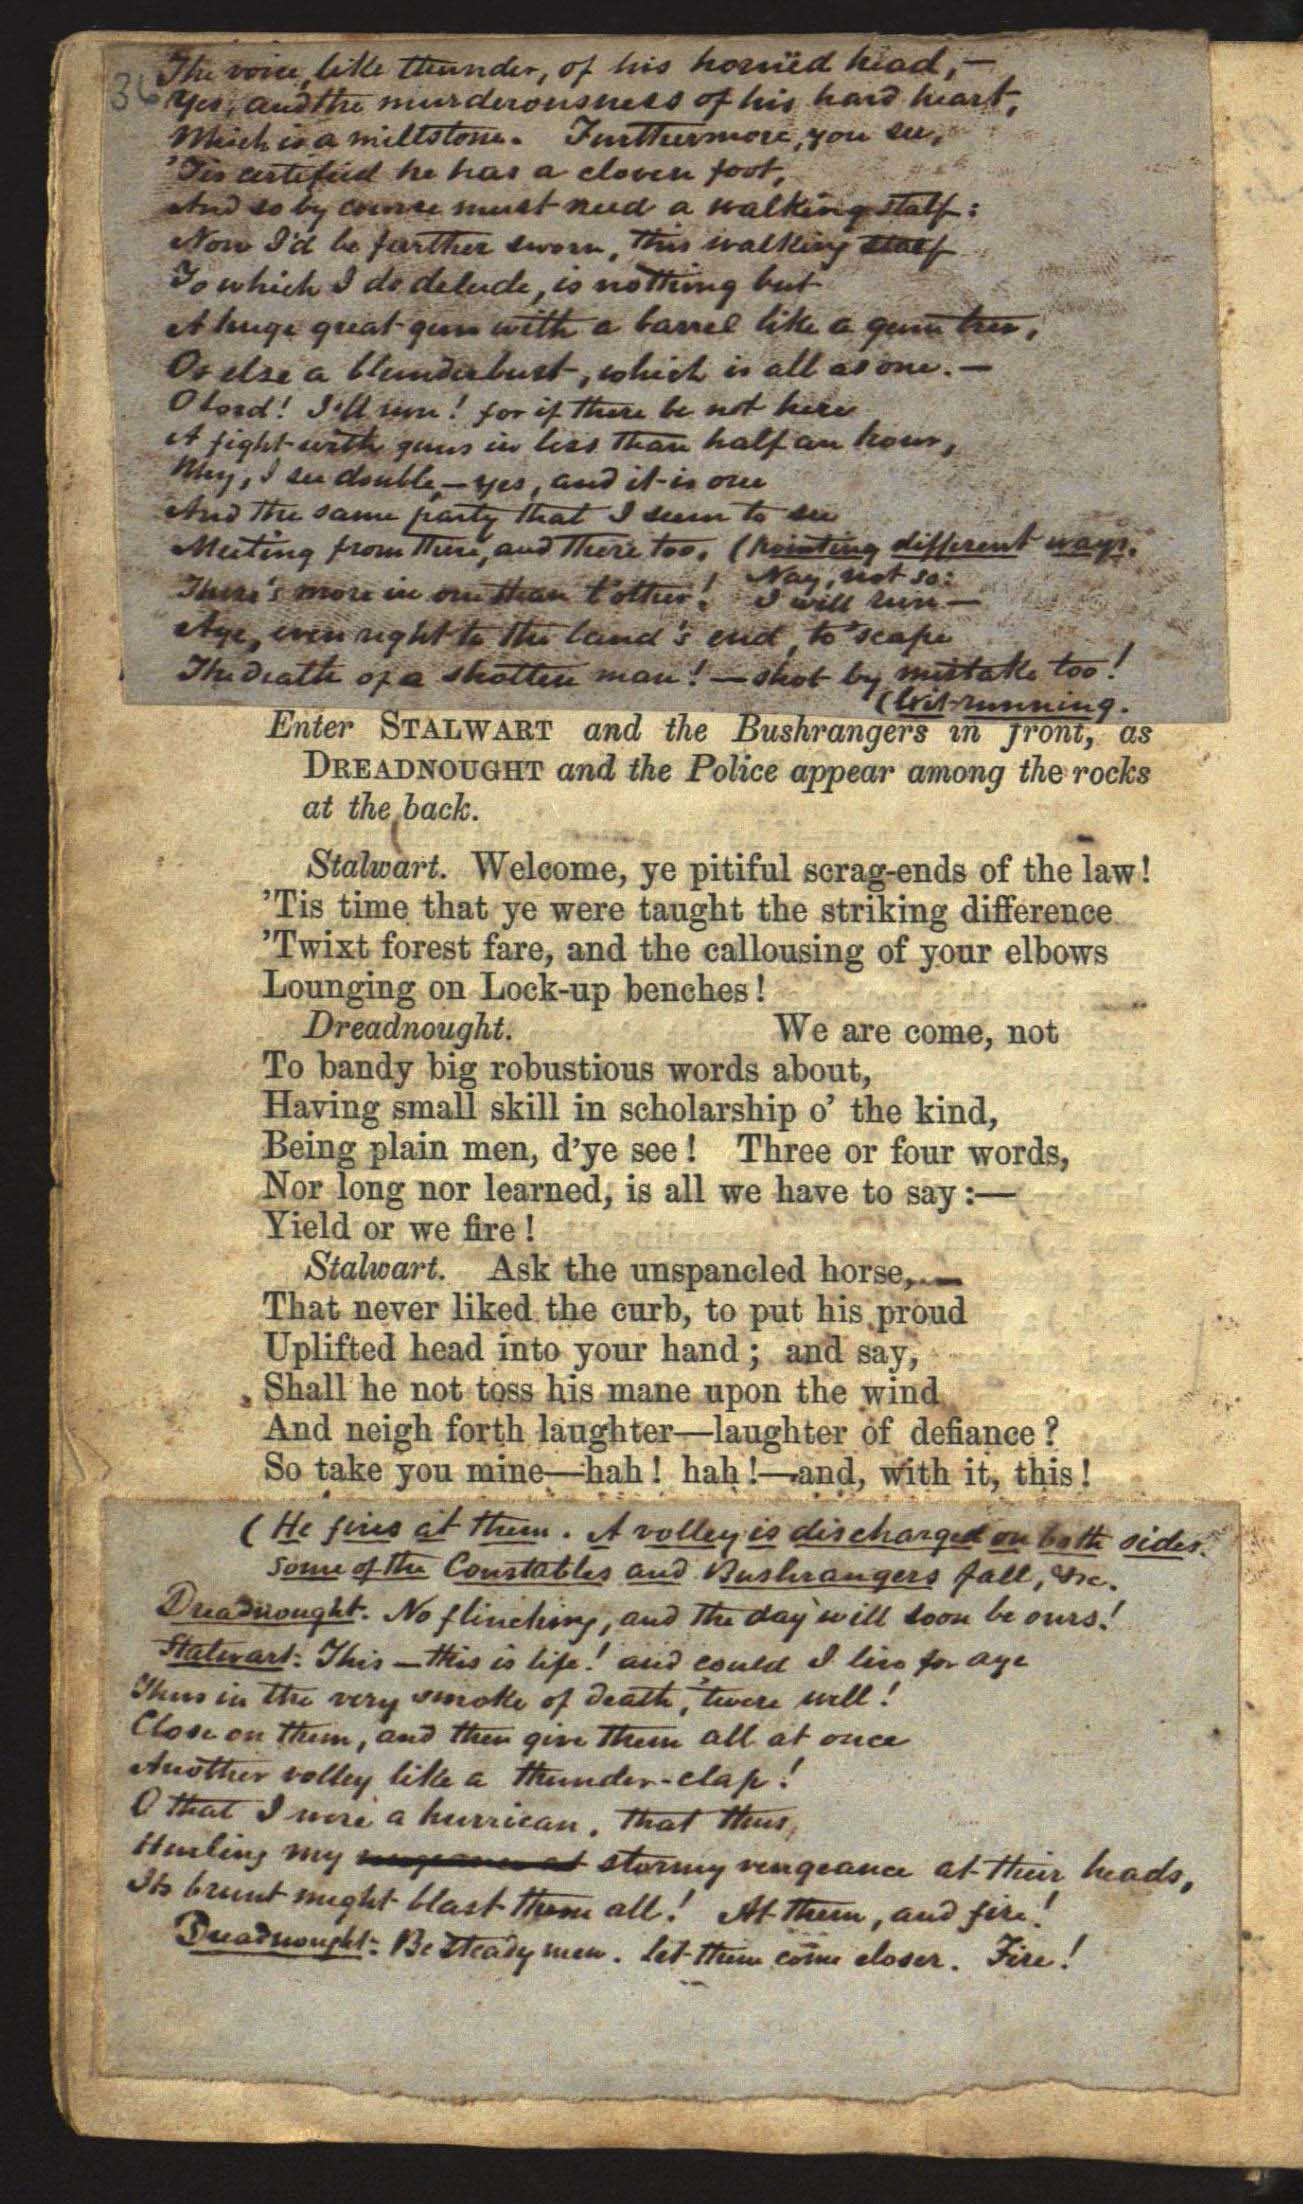 36
The voice, like thunder, of his hornëd head,—
Yes, and the murderousness of his hard heart,
Which is a millstone. Furthermore, you see,
'Tis certified he has a cloven foot,
And so by course must need a walking staff:
Now I'd be further sworn, this walking staff
To which I do delude, is nothing but
A huge great gun with a barrel like a gum tree,
Or else a blunderbust, which is all as one.—
O Lord! I'll run! for if there be not here
A fight with guns in less than half an hour,
Why, I see double,—yes, and it is one
And the same party that I seem to see
Meeting from there, and there too. (Pointing different ways.
Nay, not so:
There's more in one than t'other! I will run—
Aye, even right to the land's end, to 'scape
The death of a shotten man!—shot by mistake too!
(Exit running.
Enter STALWART and the Bushrangers in front, as
DREADNOUGHT and the Police appear among the rocks
at the back.
Stalwart. Welcome, ye pitiful scrag-ends of the law!
'Tis time that ye were taught the striking difference
'Twixt forest fare, and the callousing of your elbows
Lounging on Lock-up benches!
Dreadnought. We are come, not
To bandy big robustious words about,
Having small skill in scholarship o' the kind,
Being plain men, d'ye see! Three or four words,
Nor long nor learned, is all we have to say:—
Yield or we fire!
Stalwart. Ask the unspancled horse,—
That never liked the curb, to put his proud
Uplifted head into your hand; and say,
Shall he not toss his mane upon the wind
And neigh forth laughter—laughter of defiance?
So take you mine—hah! hah!—and, with it, this!
(He fires at them. A volley is discharged on both sides.
Some of the Constables and Bushrangers fall, &c.
Dreadnought. No flinching, and the day will soon be ours!
Stalwart: This—this is life! and could I live for aye
Thus in the very smoke of death, 'twere well!
Close on them, and then give them all at once
Another volley like a thunder-clap!
O that I were a hurrican, that thus,
Hurling my vengeance at stormy vengeance at their heads,
Its brunt might blast them all! At them, and fire!
Dreadnought: Be steady men. Let them come closer. Fire!